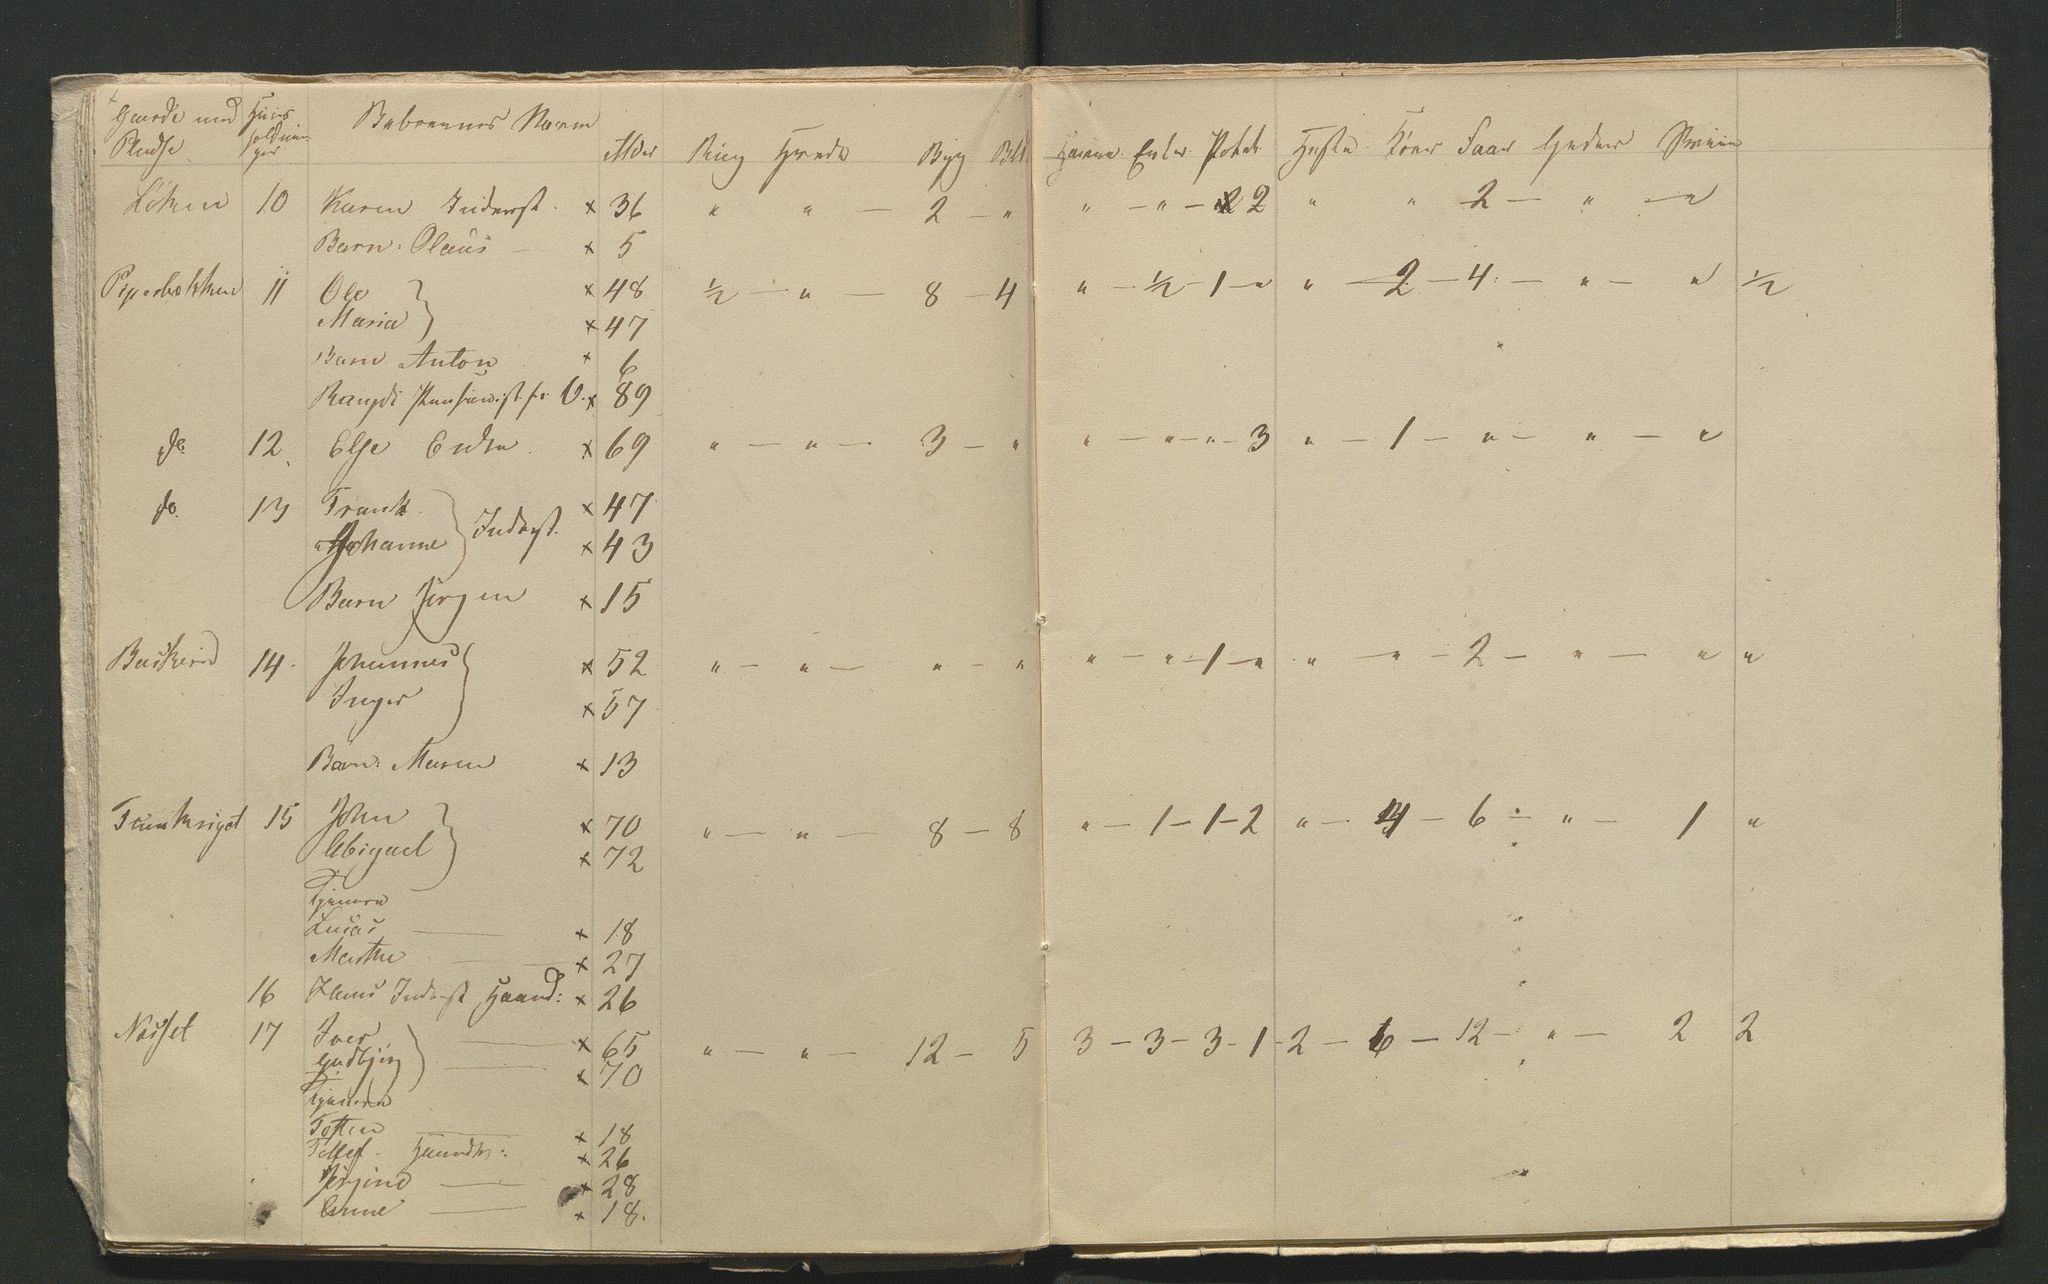 Gaarde med Huus Beboernes Navne
Pladse holdnin ger Alder Rug Hvede Byg Bl. Havre Erter Potet Heste Kjøer Faar Gjeder Sviin
Løken 10 Karen Inderst. x 36 " " — 2 — " " — " — 2 " " 2 — " — "
Barn: Olaus — x 5
Piperbækken 11 Ole x 48 ½ — " — 8 — 4 " — ½ — 1 — " " — 2 — 4 — " — " ½
Maria x 47
Barn Anton x 6
Rangdi Pensionist fr O. x 89
do 12 Else Enke x 69 " — " — 3 — " " — " — " — 3 " — 1 — " — " — "
do. 13 Frank x 47
Johanne Inderst. x 43
Barn Jørgen x 15
Baskerud 14. Johannes x 52 " — " — " — " " — " — 1 — " " — " — 2 — " — " "
Inger x 57
Barn: Maren x 13
15 John x 70 " — " — 8 — 8 " — 1 — 1 — 2 " — 4 — 6 — " — 1 "
Abigael x 72
Tjenere
Lucas — x 18
Marthe — x 27
16 Hans Inderst Haand: x 26
Næsset 17 Iver — x 65 " — " — 12 — 5 3 — 3 — 3 — 1 — 2 — 6 — 12 — " — 2 2
Gudbjør — x 70
Tjenere
Tosten — x 18
Tellef. Haandv: x 26
Jørgine — x 28
Anne — x 18.